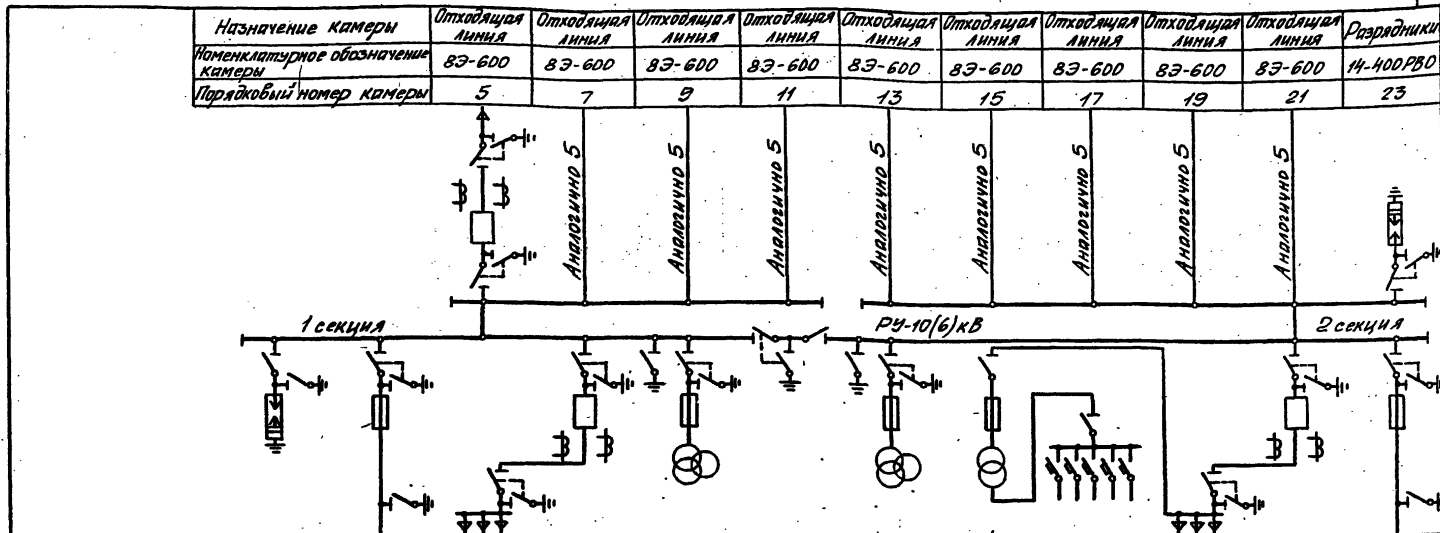 Назначение камеры Отходящая линия Отходящая линия Отходящая линия Отходящая линия Отходящая линия Отходящая линия Отходящая линия Отходящая линия Отходящая линия Разрядники
Номенклатурное обозначение камеры 8Э-600 8Э-600 8Э-600 8Э-600 8Э-600 8Э-600 8Э-600 8Э-600 8Э-600 14-400РВО
Порядковый номер камеры 5 7 9 11 13 15 17 19 21 23
Аналогично 5
Аналогично 5
Аналогично 5
Аналогично 5
Аналогично 5
Аналогично 5
Аналогично 5
Аналогично 5
1 секция
РУ-10(6)кВ
2 секция